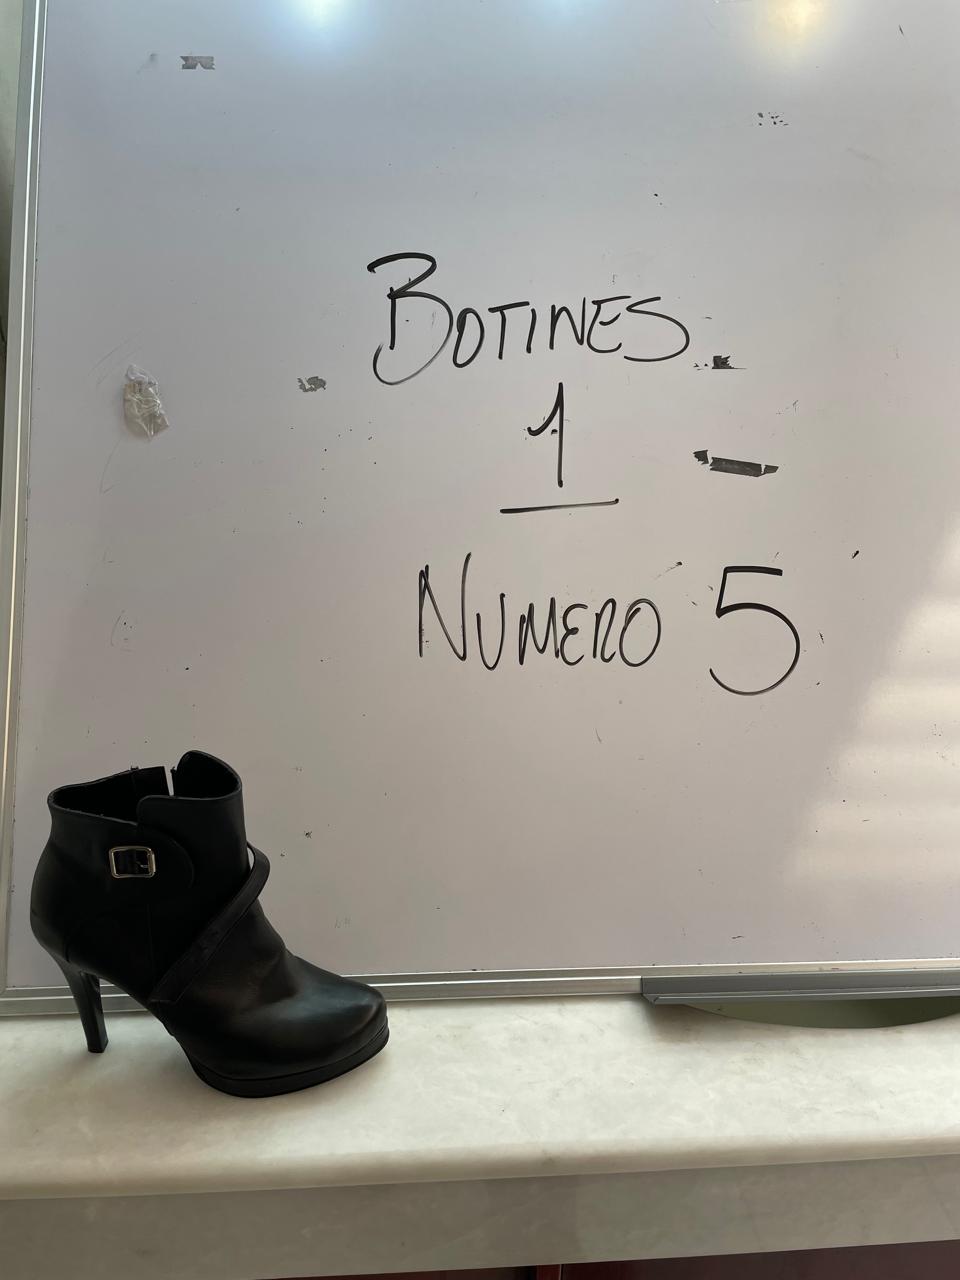 BOTINES
1
NUMERO 5